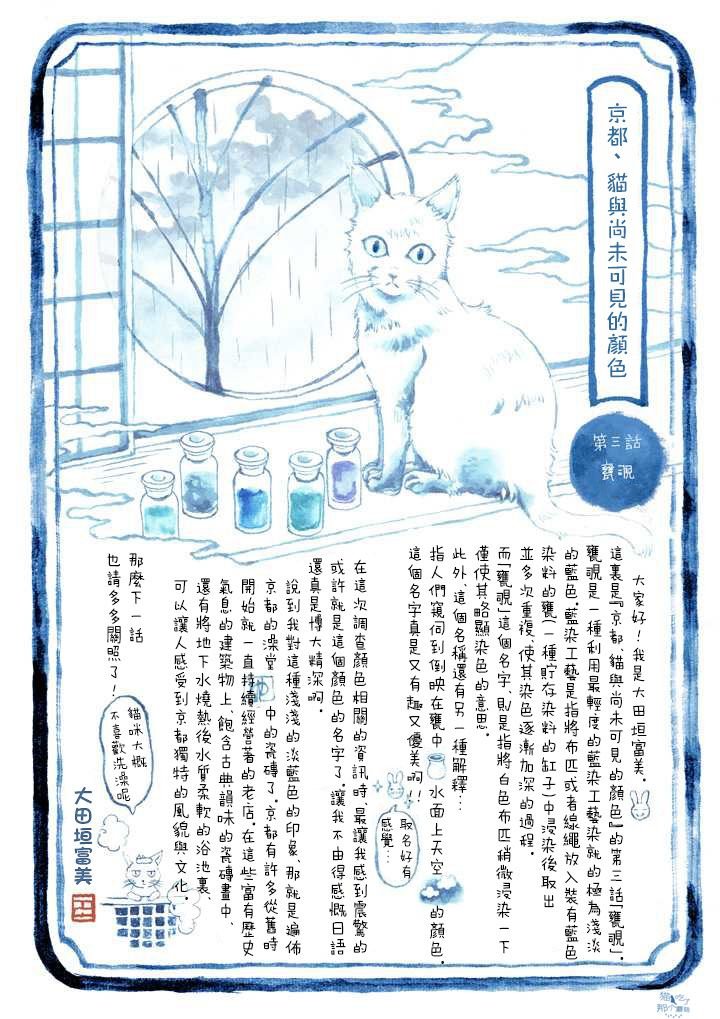 京都、貓與尚未可見的顏色
第三話
甕覗
大家好！我是大田垣富美。
這裏是『京都、貓與尚未可見的顏色』的第三話「甕覗」。
甕覗是一種利用最輕度的藍染工藝染就的極為淺淡
的藍色。藍染工藝是指將布匹或者線繩放入裝有藍色
染料的甕（一種貯存染料的缸子）中浸染後取出
並多次重複、使其染色逐漸加深的過程。
而「甕覗」這個名字、則是指將白色布匹稍微浸染一下
僅使其略顯染色的意思。
此外、這個名稱還有另一種解釋…
指人們窺伺到倒映在甕中水面上天空的顏色。
這個名字真是又有趣又優美啊！！
取名好有
感覺…
在這次調查顏色相關的資訊時、最讓我感到震驚的
或許就是這個顏色的名字了。讓我不由得感慨日語
還真是博大精深啊。
說到我對這種淺淺的淡藍色的印象、那就是遍佈
京都的澡堂中的瓷磚了。京都有許多從舊時
開始就一直持續經營著的老店。在這些富有歷史
氣息的建築物上、飽含古典韻味的瓷磚畫中、
還有將地下水燒熱後水質柔軟的浴池裏、
可以讓人感受到京都獨特的風貌與文化。
那麼下一話
也請多多關照了！
貓咪大概
不喜歡洗澡呢
大田垣富美